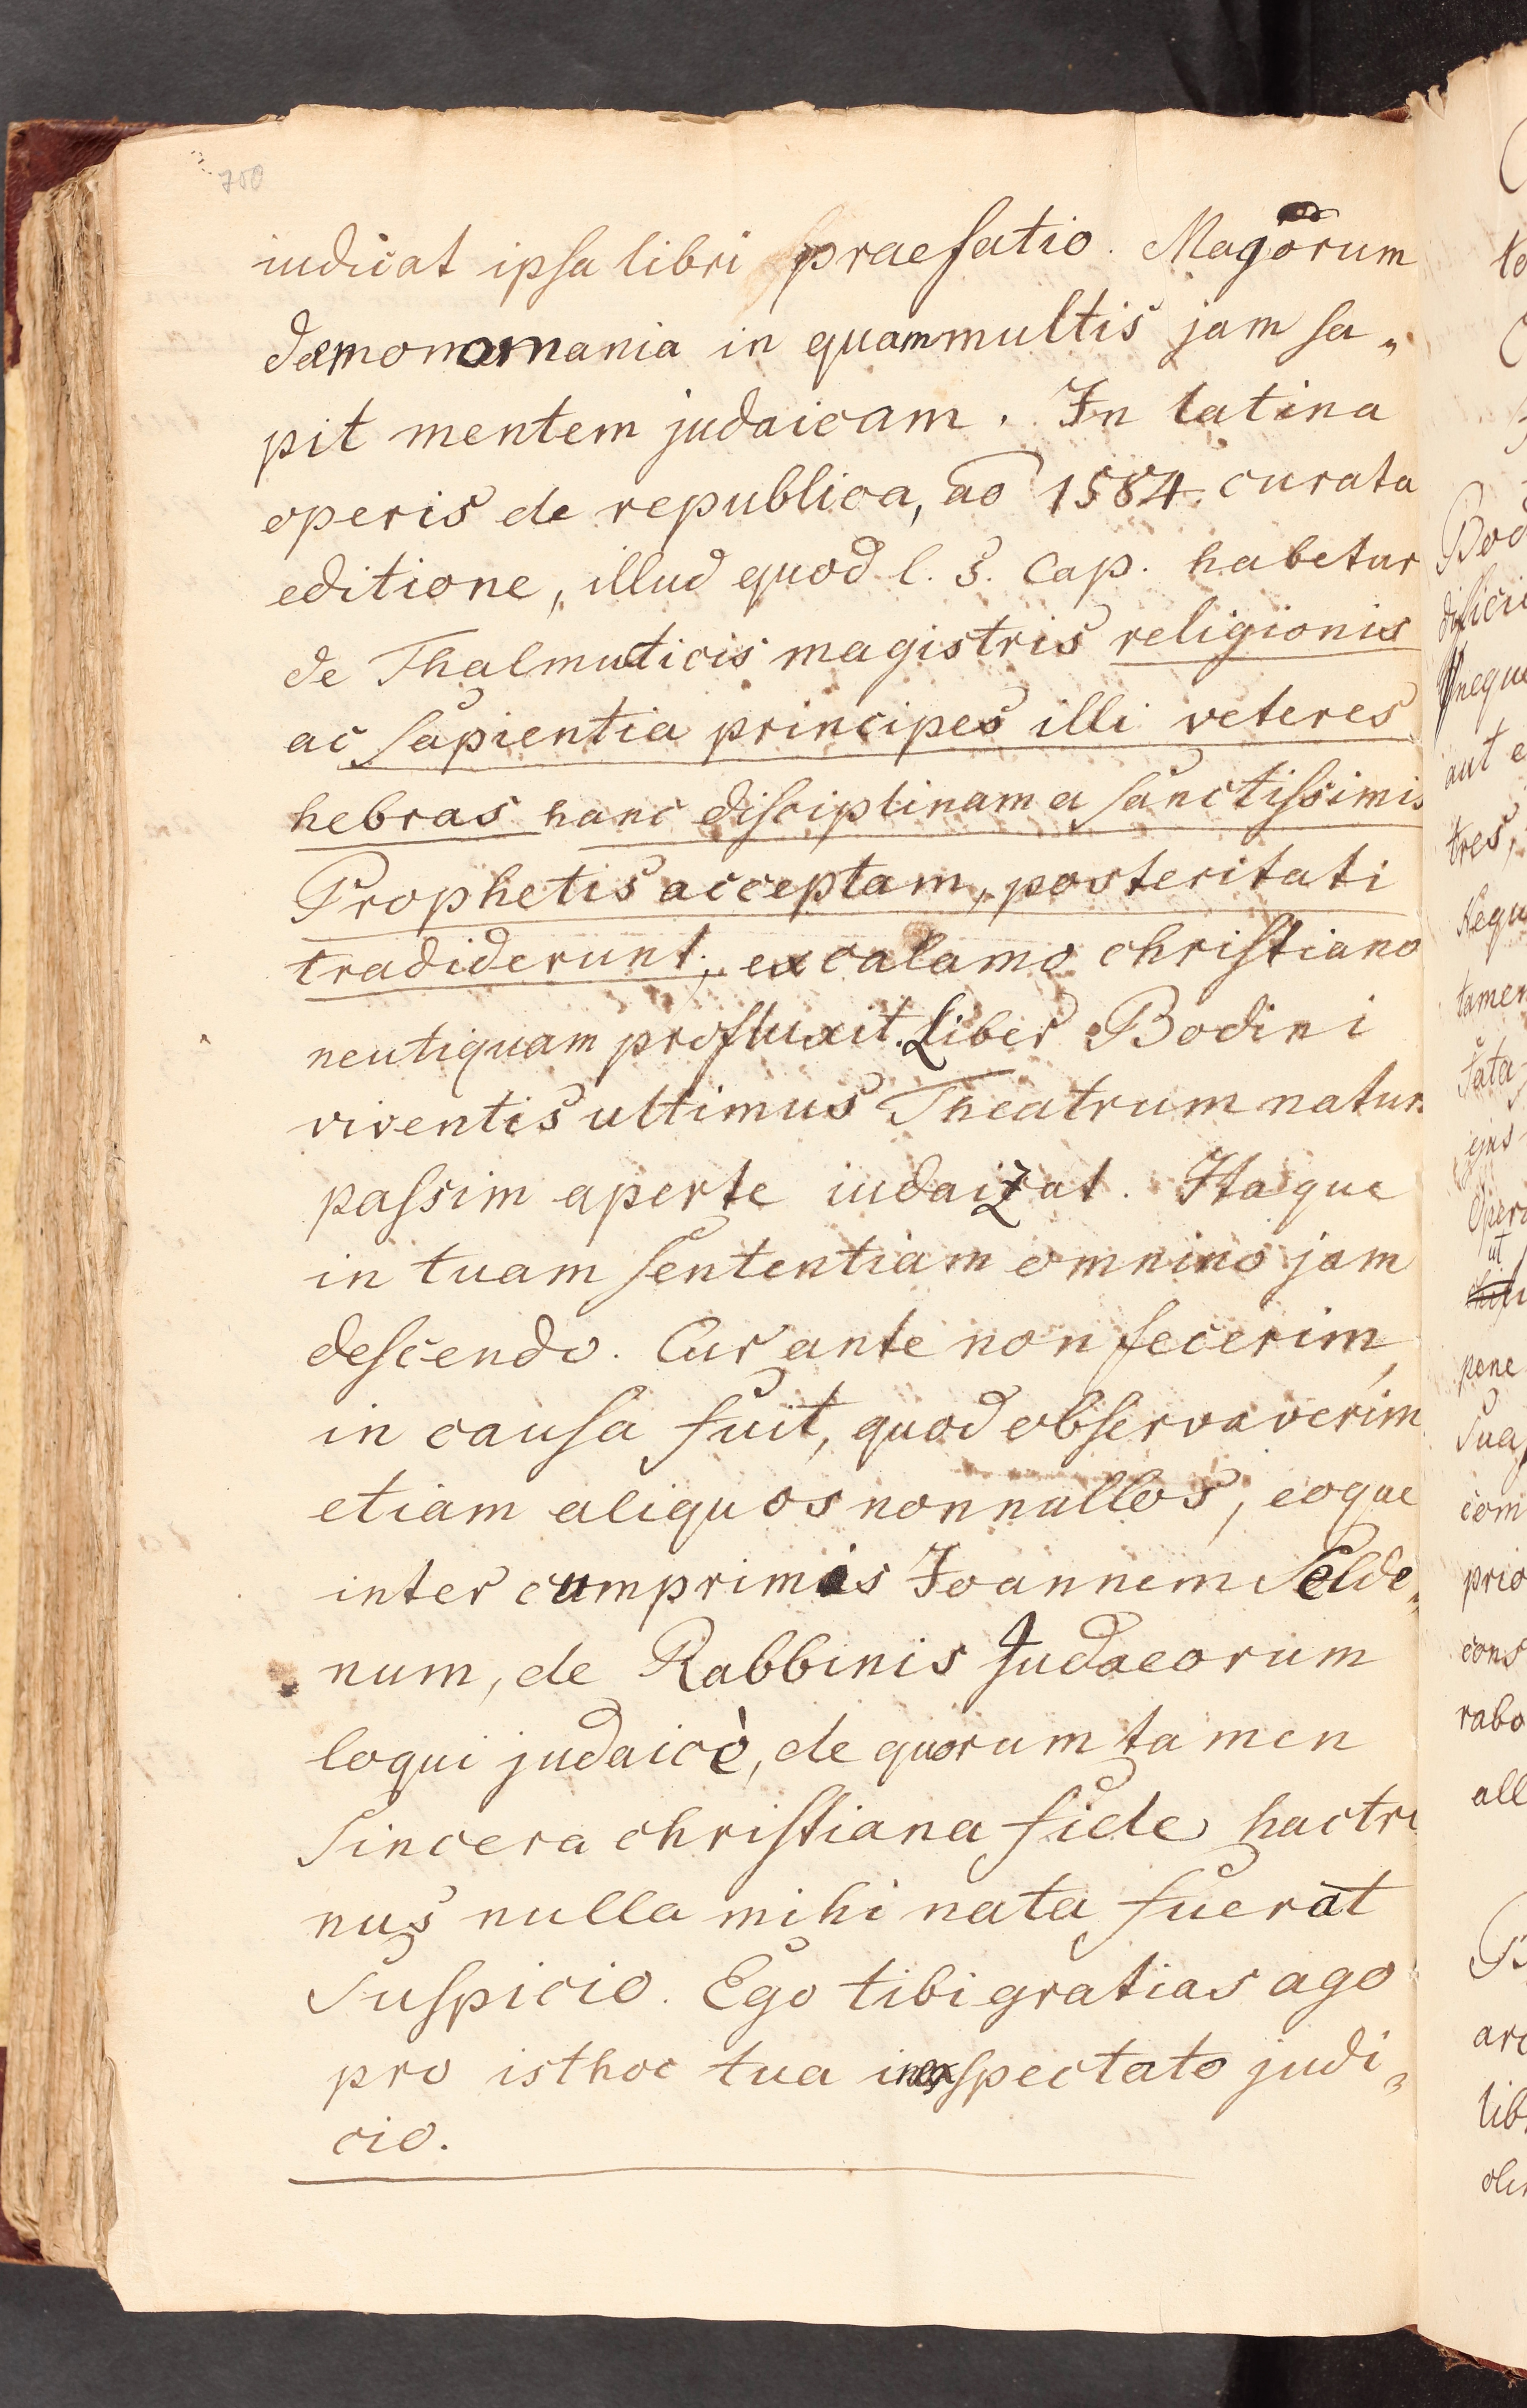 700
indicat ipsa libri praefatio. Magorum
daemonomania in quammultis jam sa„
pit mentem judaicam. In latina
operis de republica, ao 1584. curata
editione, illud quod l. 3. Cap. habetur
de Thalmuticis magistris religionis
ac sapientia principes illi veteres
hebras hanc disciplinam a sanctissimis
Prophetis acceptam, posteritati
tradiderunt; ex calamo christiano
neutiquam profluxit. Liber Bodini
viventis ultimus Theatrum natur
passim aperte iudaizat. Itaque
in tuam sententiam omnino jam
descendo. Cur ante non fecerim,
in causa fuit, quod observaverim
etiam aliquos nonnullos, eoque
inter cumprimis Joannem Selde„
num, de Rabbinis Judaeorum
loqui judaicè, de quorum tamen
sincera christiana fide hacte
nus nulla mihi nata fuerat
suspicio. Ego tibi gratias ago
pro isthoc tua inexspectato judi„
cio.
Bod
neque
aut e
tres,
Nequ
tamen
fata
ejus
Oper
ut
pene
sua
com
prio
cons
rabo
all
arc
lib